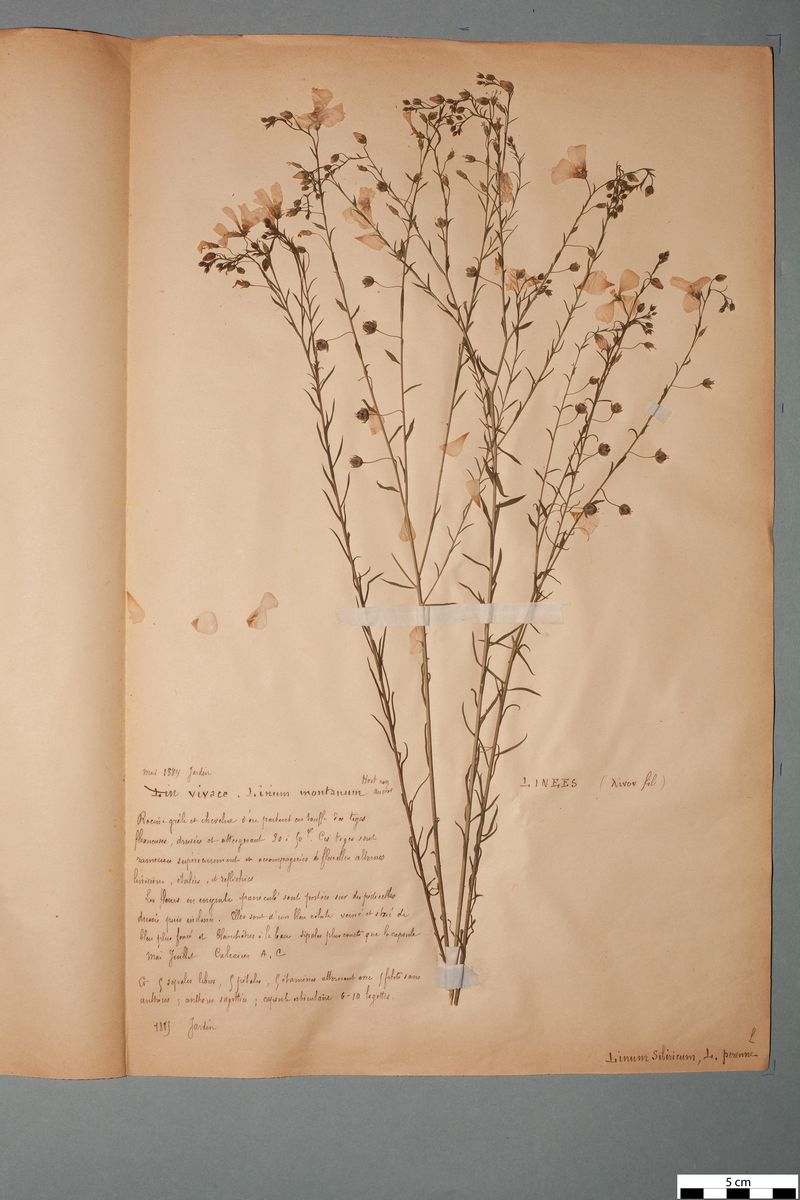 Mai 1884 Jardin
Lin vivace. Linum montanum Host non auctor
LINÉES
Racine grêle et chevelue d'où partent en touffe des tiges
florineuses, dressées et atteignant 30 à 50 Ces tiges sont
rameuses supérieurement et accompagnées de feuilles alternes
linéaires, étalées, et réfléchies
Les fleurs en panicule sont portées sur des pédicelles
dressés puis inclinés. Elles sont d'un bleu céleste veiné et strié de
bleu plus foncé et blanchâtres à la base sépales plus courts que la capsule
Mai Juillet Calcaires A. C
5 sépales libres, 5 pétales, 5 étamines alternant avec 5 filets sans
anthères; anthères sagittées; capsule orbiculaire 6-10 logettes.
1885 Jardin
Linum Sibiricum, L. perenne
5 cm